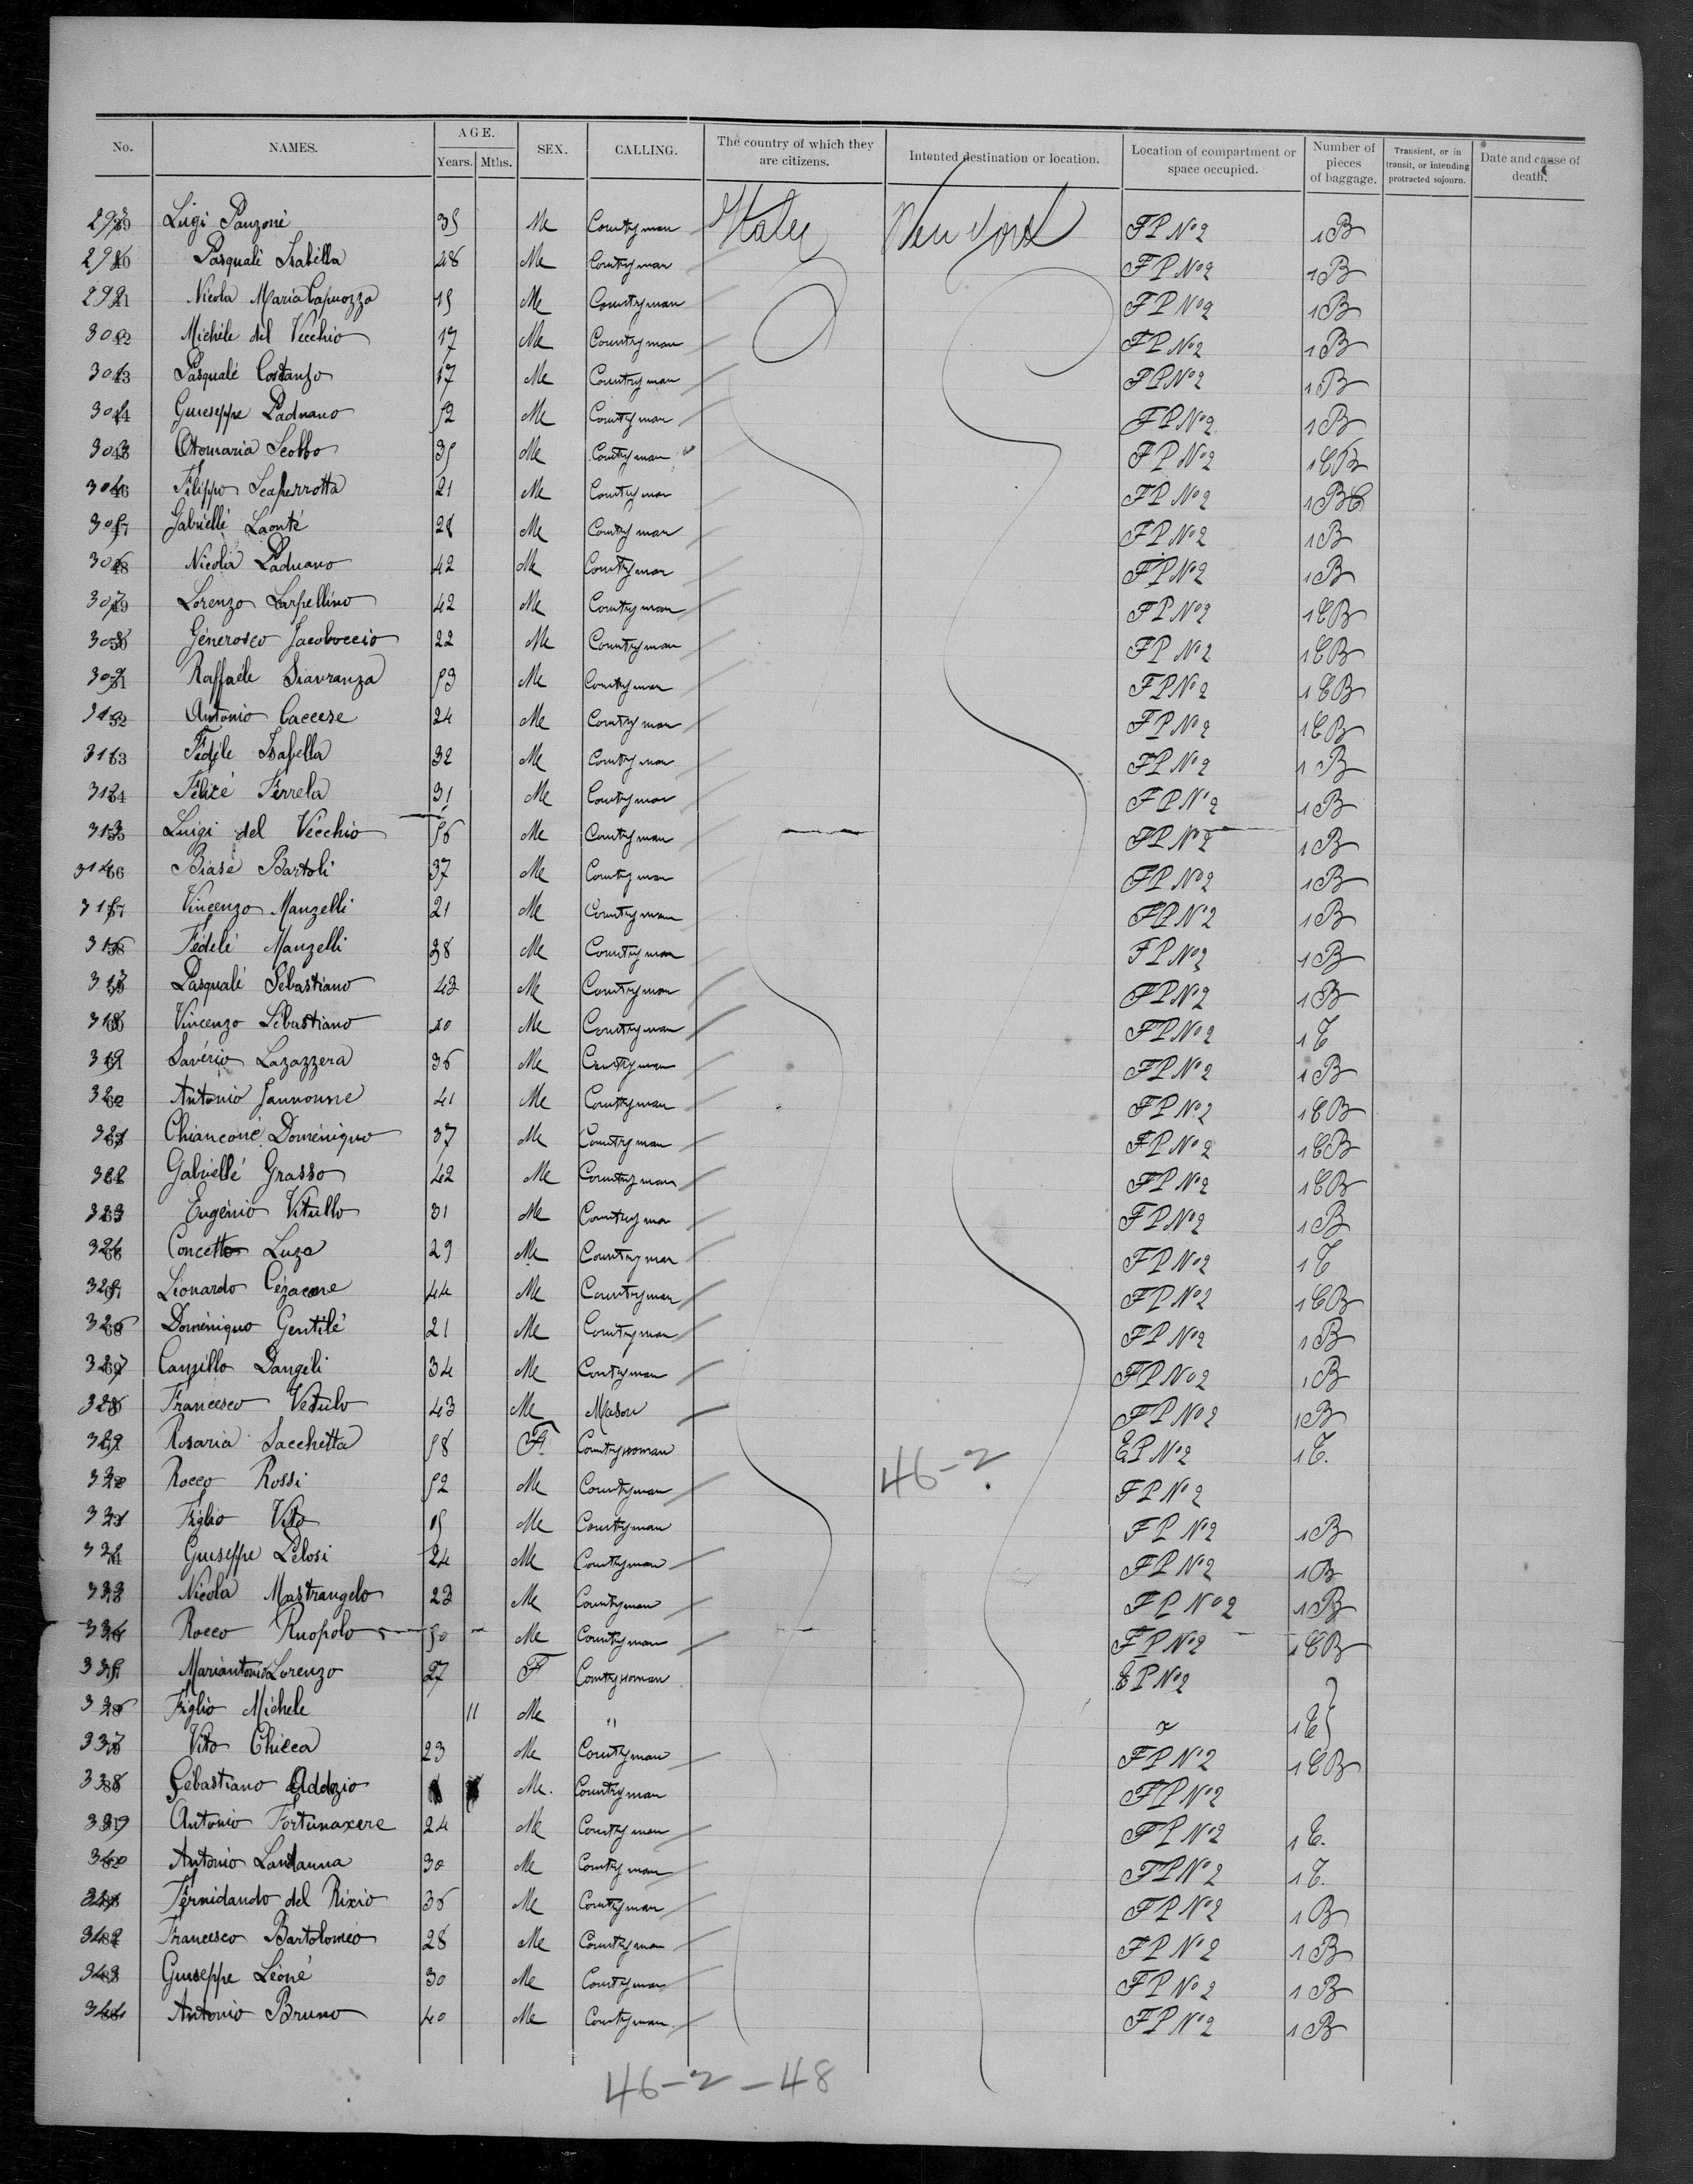 No. NAMES. AGE. Years. Mths. SEX. CALLING. The country of which they are citizens. Intented destination or location. Location of compartment or space occupied. Number of pieces of baggage. Transient, or in transit, or intending protracted sojourn. Date and cause of death.
Luigi Panzoné 35 Me Countryman Italy New York FP No 2 1B
Pasquale Isabella 48 Me Countryman FP No 2 1B
Nicola Maria Capuozzo 15 Me Countryman FP No 2 1B
302 Michéle del Vecchio 17 Me Countryman FP No 2 1B
301 Pasqualé Costanzo 17 Me Countryman FP No 2 1B
302 Guiseppe Padnano 52 Me Countryman FP No 2 1B
303 Otomaria Scobbo 35 Me Countryman FP No 2 1CB
304 Filippo Scaperrotta 21 Me Countryman FP No 2 1BC
305 Gabriellé Laonté 28 Me Countryman FP No 2 1B
306 Nicola Padnano 42 Me Countryman FP No 2 1B
307 Lorenzo Carpellino 42 Me Countryman FP No 2 1CB
308 Génerosco Jacoboccio 22 Me Countryman FP No 2 1CB
309 Raffaele Siavranza 53 Me Countryman FP No 2 1CB
310 Antonio Caccese 24 Me Countryman FP No 2 1CB
311 Fidéle Isabella 32 Me Countryman FP No 2 1B
312 Felicé Ferrela 31 Me Countryman FP No 2 1B
313 Luigi del Vecchio 56 Me Countryman FP No 2 1B
314 Biasé Bartoli 37 Me Countryman FP No 2 1B
315 Vincenzo Manzelli 21 Me Countryman FP No 2 1B
316 Fédelé Manzelli 38 Me Countryman FP No 2 1B
317 Pasqualé Sébastiano 43 Me Countryman FP No 2 1B
318 Vincenzo Sébastiano 20 Me Countryman FP No 2 1C
319 Savério Lazazzera 36 Me Countryman FP No 2 1B
320 Antonio Jannonne 41 Me Countryman FP No 2 1CB
321 Chianconé Doméniquo 37 Me Countryman FP No 2 1CB
322 Gabriellé Grasso 42 Me Countryman FP No 2 1CB
323 Eugénio Vitullo 31 Me Countryman FP No 2 1B
324 Concetto Luzo 29 Me Countryman FP No 2 1C
325 Léonardo Cézacone 44 Me Countryman FP No 2 1CB
326 Doméniquo Gentilé 21 Me Countryman FP No 2 1B
327 Canzillo Dangéli 34 Me Countryman FP No 2 1B
328 Francesco Vetulo 43 Me Mason FP No 2 1B
329 Rosaria Sacchetta 58 F Countrywoman EP No 2 1C.
330 Rocco Rossi 52 Me Countryman 46-2 FP No 2
331 Figlio Vito 15 Me Countryman FP No 2 1B
332 Guiseppe Pelosi 24 Me Countryman FP No 2 1B
333 Nicola Mastrangelo 23 Me Countryman FP No 2 1B
334 Rocco Ruopolo 50 Me Countryman FP No 2 1CB
335 Mariantonia Lorenzo 27 F Countrywoman EP No 2
336 Figlio Michele 11 Me " 1C
337 Vito Chicca 23 Me Countryman FP No 2 1CB
338 Sébastiano Addezio Me. Countryman FP No 2
339 Antonio Fortunaxere 24 Me Countryman FP No 2 1C.
340 Antonio Landanna 30 Me Countryman FP No 2 1C.
341 Fernidando del Rixio 36 Me Countryman FP No 2 1B
342 Francesco Bartoloméo 28 Me Countryman FP No 2 1B
343 Guiseppe Léoné 30 Me Countryman FP No 2 1B
344 Antonio Bruno 40 Me Countryman FP No 2 1B
46-2-48